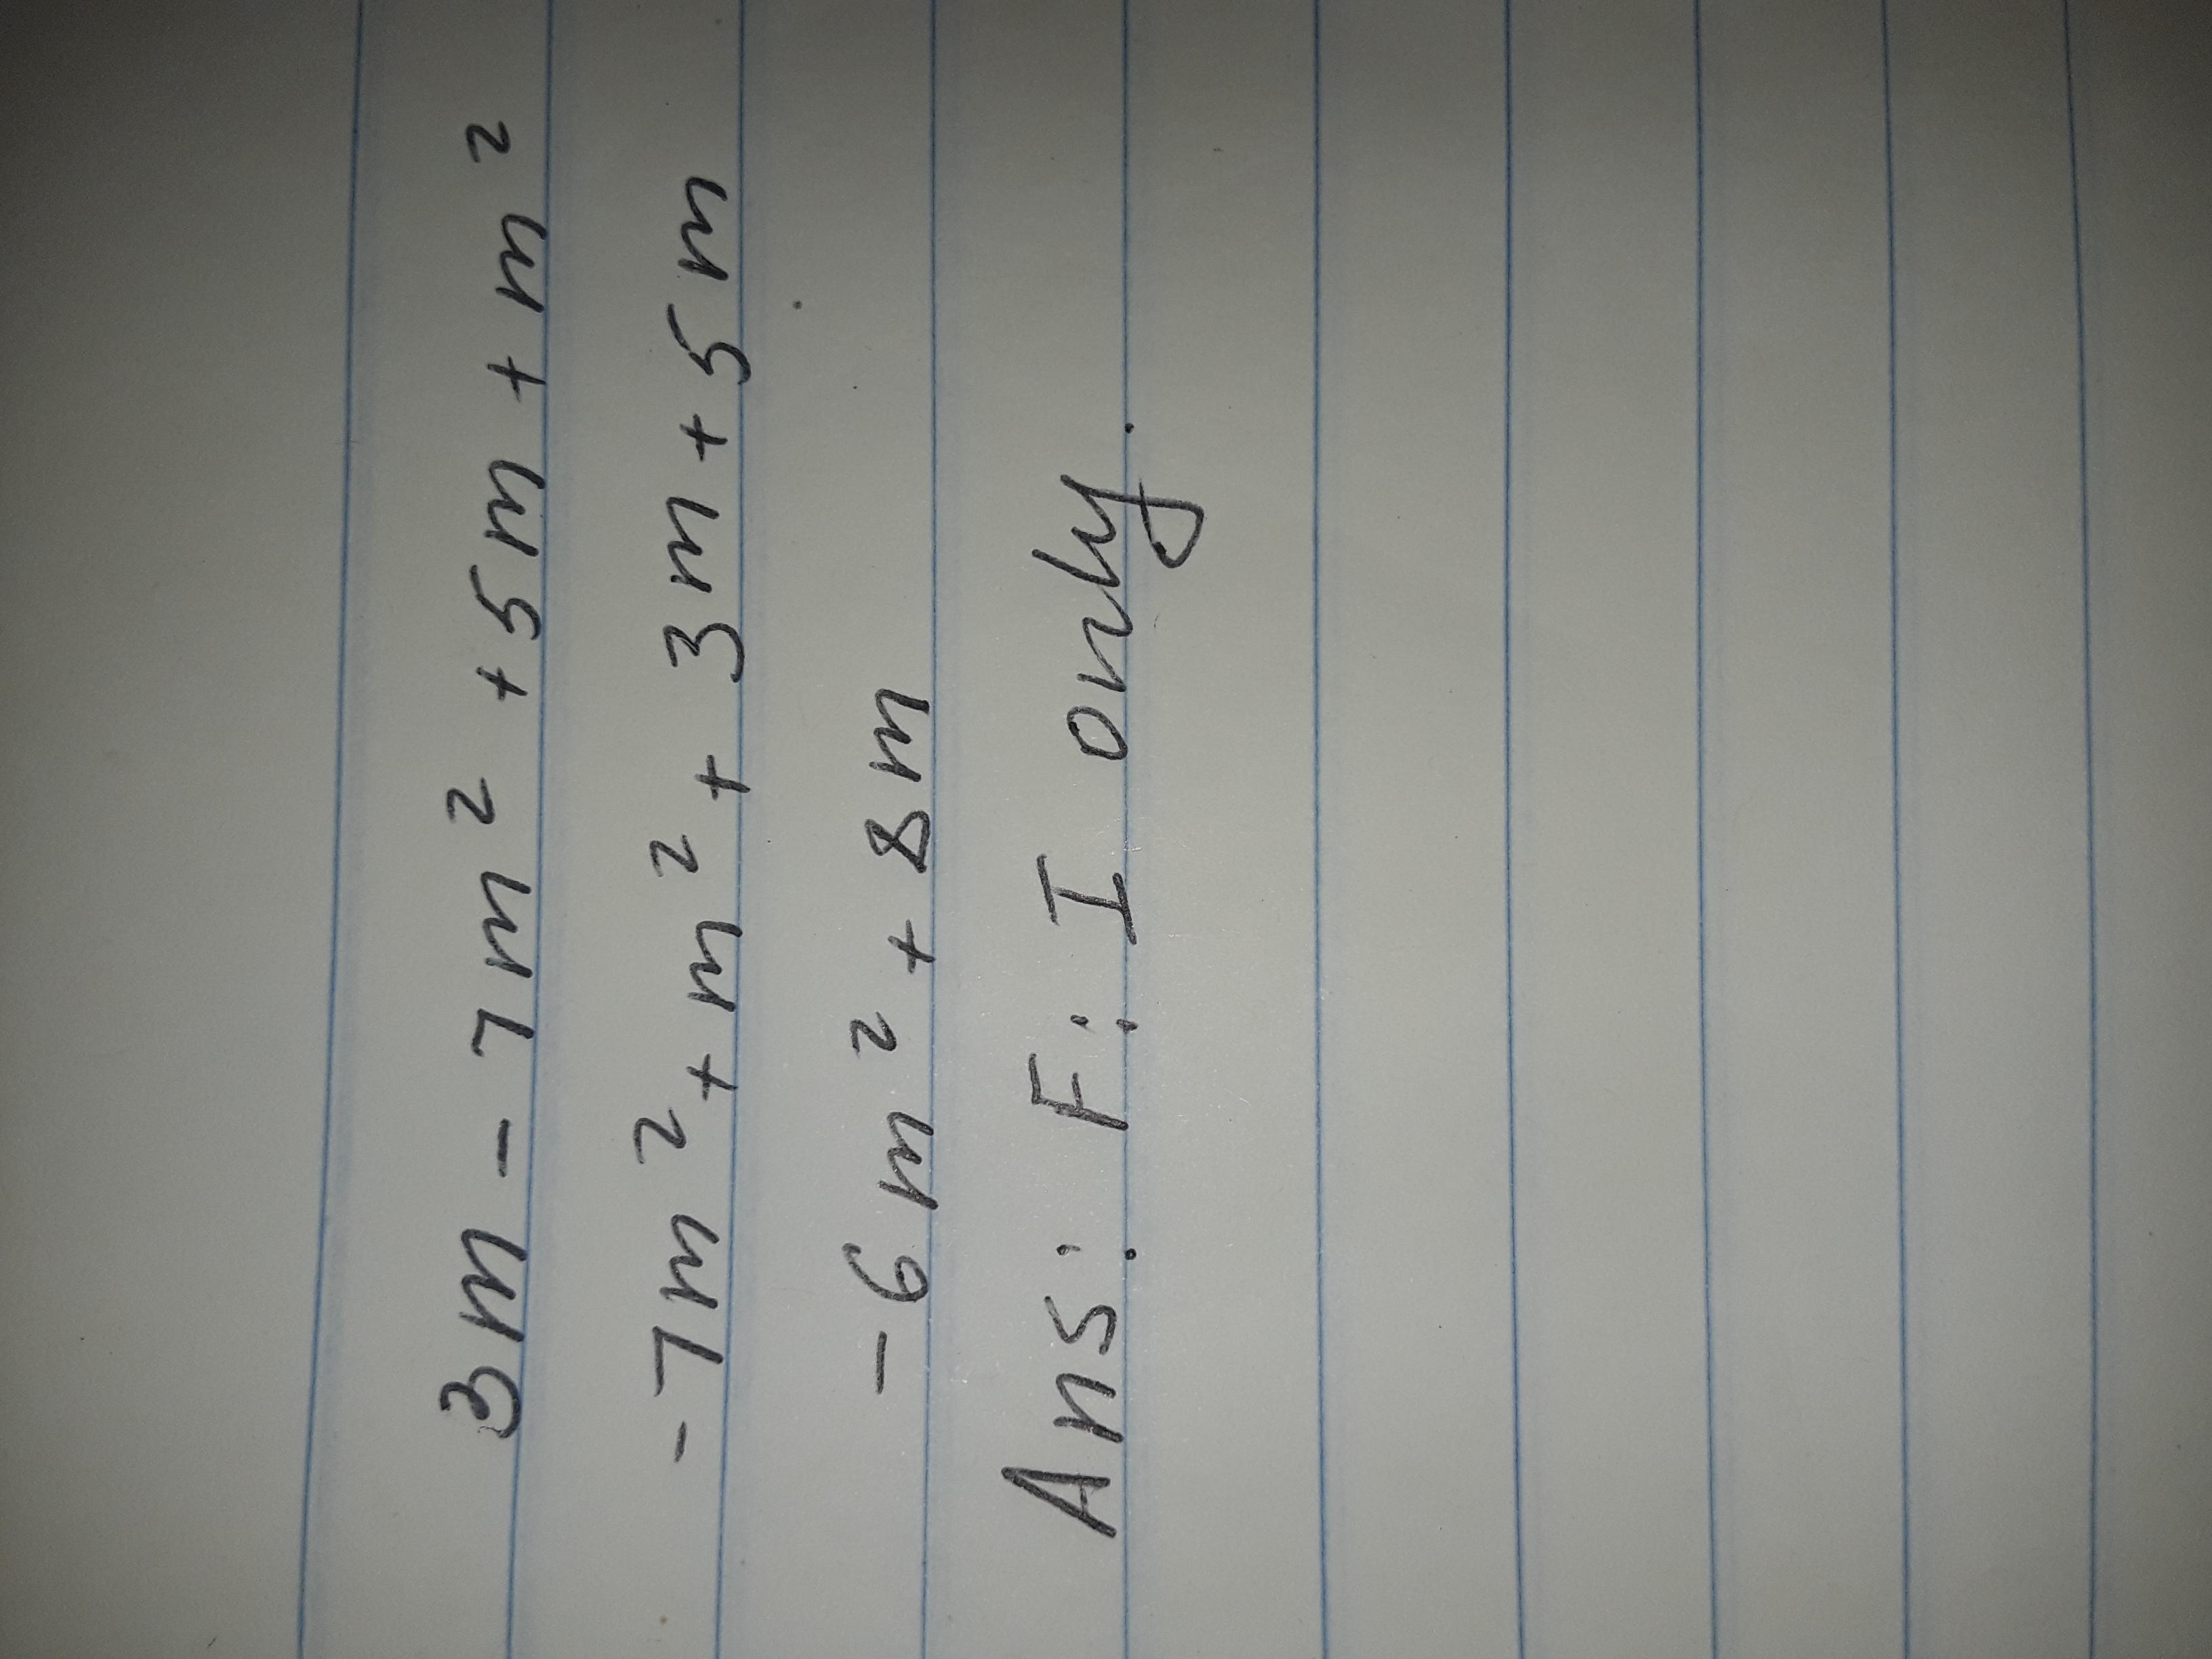 3m - 7m² + 5m + m²
-7m² + m² + 3m + 5m
-6m² + 8m
Ans: F: I only.